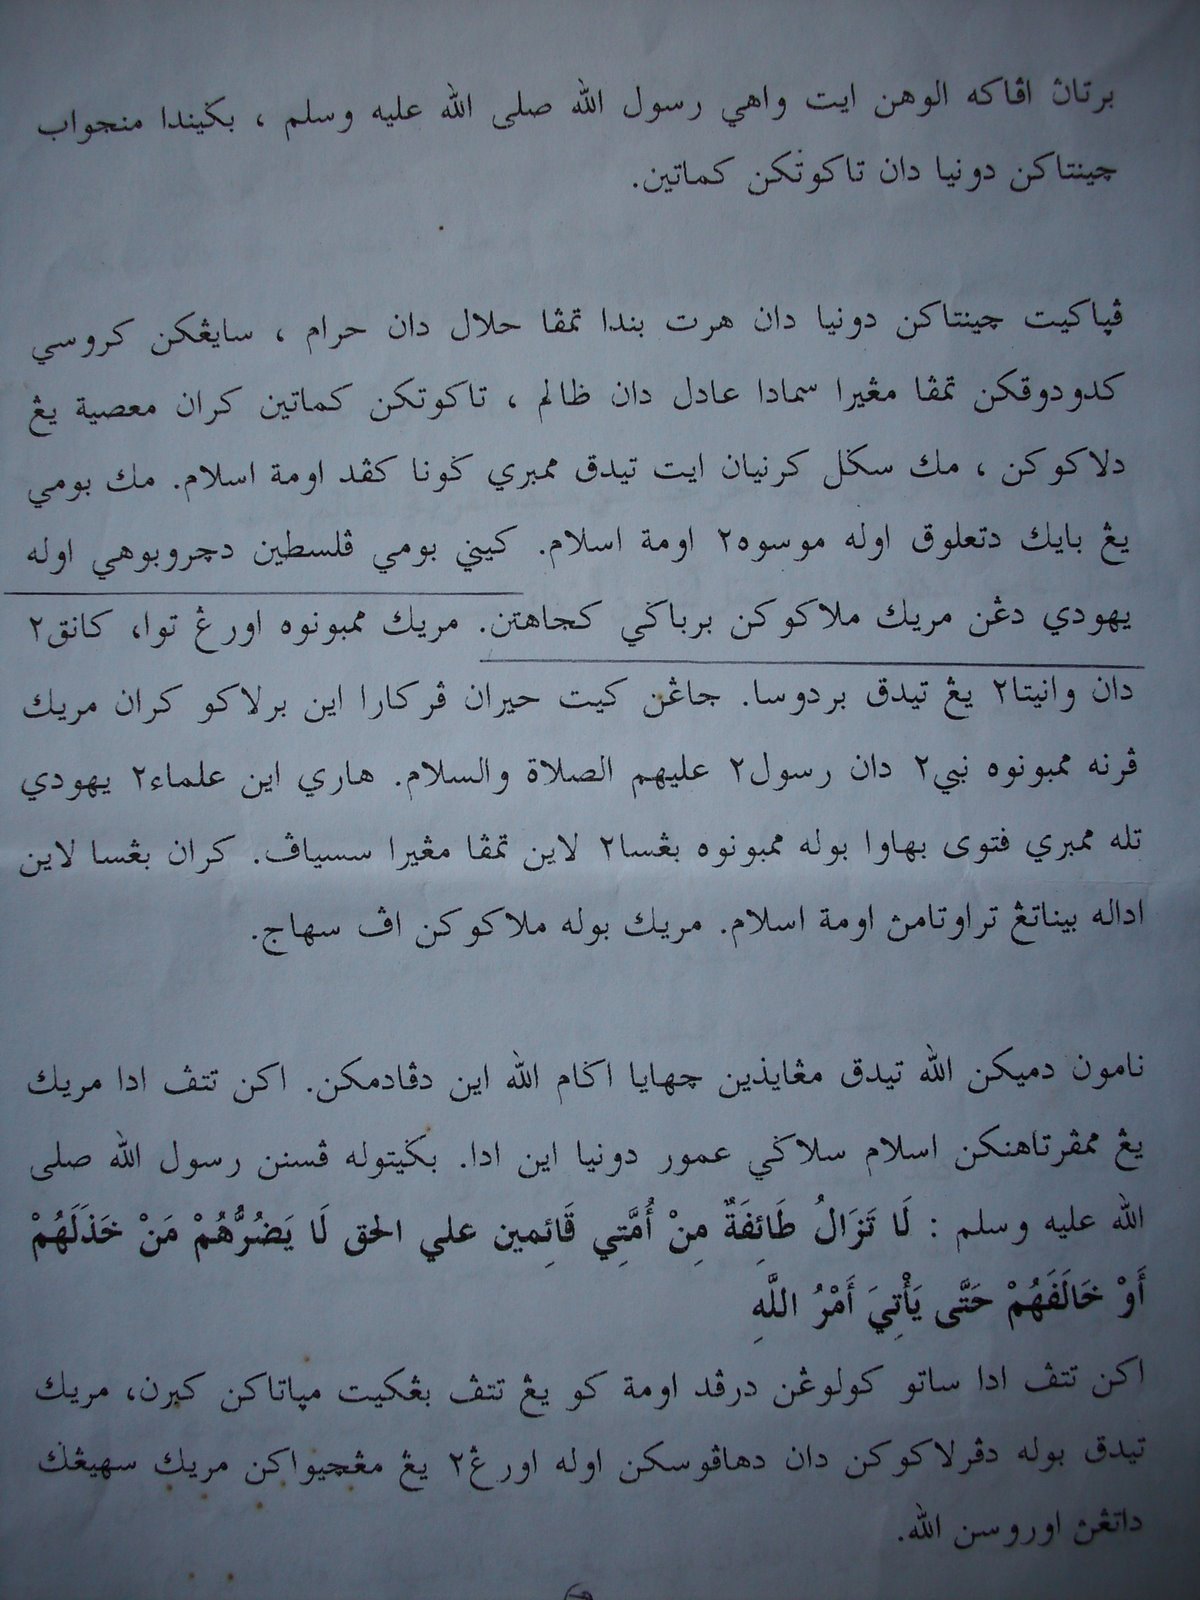 برتاڽ اڤاكه الوهن ايت واهي رسول الله صلى الله عليه وسلم ، بݢيندا منجواب
چينتاكن دونيا دان تاكوتكن كماتين.
ڤڽاكيت چينتاكن دونيا دان هرت بندا تمڤا حلال دان حرام ، سايڠكن كروسي
كدودوقكن تمڤا مڠيرا سمادا عادل دان ظالم ، تاكوتكن كماتين كران معصية يڠ
دلاكوكن ، مك سݢل كرنيان ايت تيدق ممبري ݢونا كڤد اومة اسلام. مك بومي
يڠ بايك دتعلوق اوله موسوه٢ اومة اسلام. كيني بومي ڤلسطين دچروبوهي اوله
يهودي دڠن مريك ملاكوكن برباݢي كجاهتن. مريك ممبونوه اورڠ توا، كانق٢
دان وانيتا٢ يڠ تيدق بردوسا. جاڠن كيت حيران ڤركارا اين برلاكو كران مريك
ڤرنه ممبونوه نبي٢ دان رسول٢ عليهم الصلاة والسلام. هاري اين علماء٢ يهودي
تله ممبري فتوى بهاوا بوله ممبونوه بڠسا٢ لاين تمڤا مڠيرا سسياڤ. كران بڠسا لاين
اداله بيناتڠ تراوتامڽ اومة اسلام. مريك بوله ملاكوكن اڤ سهاج.
نامون دميكن الله تيدق مڠايذين چهايا اݢام الله اين دڤادمكن. اكن تتڤ ادا مريك
يڠ ممڤرتاهنكن اسلام سلاݢي عمور دونيا اين ادا. بݢيتوله ڤسنن رسول الله صلى
الله عليه وسلم : لَا تَزَالُ طَائِفَةٌ مِنْ أُمَّتِي قَائِمِين علي الحق لَا يَضُرُّهُمْ مَنْ خَذَلَهُمْ
أَوْ خَالَفَهُمْ حَتَّى يَأْتِيَ أَمْرُ اللَّهِ
اكن تتڤ ادا ساتو كولوڠن درڤد اومة كو يڠ تتڤ بڠكيت مڽاتاكن كبرن، مريك
تيدق بوله دڤرلاكوكن دان دهاڤوسكن اوله اورڠ٢ يڠ مڠچيواكن مريك سهيڠݢ
داتڠڽ اوروسن الله.